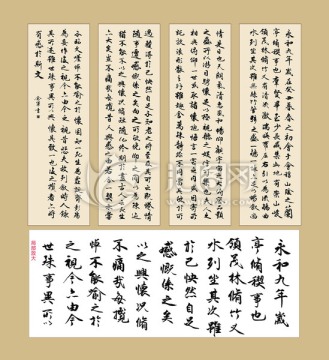 永和九年歲在癸丑暮春之初會于會稽山陰之蘭
亭脩稧事也羣賢畢至少長咸集此地有崇山峻
領茂林脩竹又有清流激湍映帶左右引以為流觴曲
水列坐其次雖無絲竹管弦之盛一觴一詠亦足以暢敘幽
情是日也天朗氣清惠風和暢仰觀宇宙之大俯察品類
之盛所以遊目騁懷足以極視聽之娛信可樂也夫人之相
與俯仰一世或取諸懷抱悟言一室之內或因寄所
託放浪形骸之外雖趣舍萬殊靜躁不同當其欣於所
遇暫得於己怏然自足不知老之將至及其所之既倦情
隨事遷感慨係之矣向之所欣俛仰之間以為陳迹
猶不能不以之興懷況脩短隨化終期於盡古人云死生
亦大矣豈不痛哉每攬昔人興感之由若合一契未嘗不
臨文嗟悼不能喻之於懷固知一死生為虛誕齊彭
殤為妄作後之視今亦由今之視昔悲夫故列敘時人錄
其所述雖世殊事異所以興懷其致一也後之攬者亦將
有感於斯文
永和九年歲
亭脩稧事也
領茂林脩竹又
水列坐其次雖
於己怏然自足
感慨係之矣
以之興懷況脩
不痛哉每攬
悼不能喻之於
之視今亦由今
世殊事異所以
局部放大